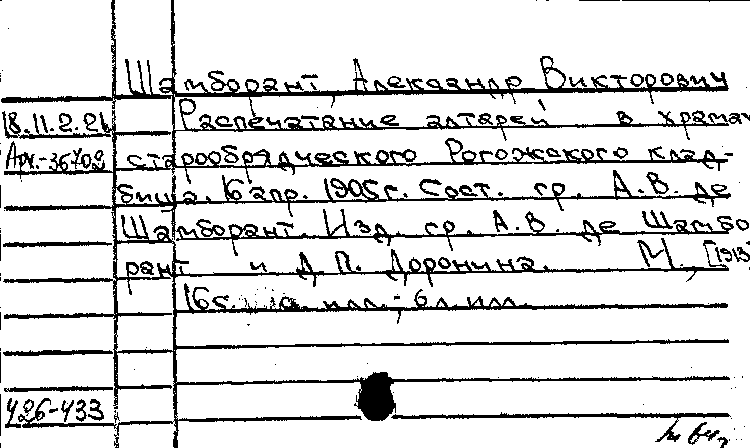 Шамборант, Александр Викторович
18.11.2.26 Распечатание алтарей в храмах
Арх.-36702 старообрядческого Рогожского клад-
бища. 16 апр. 1905 г. Сост. гр. А.В. де
Шамборант. Изд. гр. А.В. де Шамбо
рант и Д.П. Доронина. М., [1913]
16с. илл.; 6л. илл.
426-433